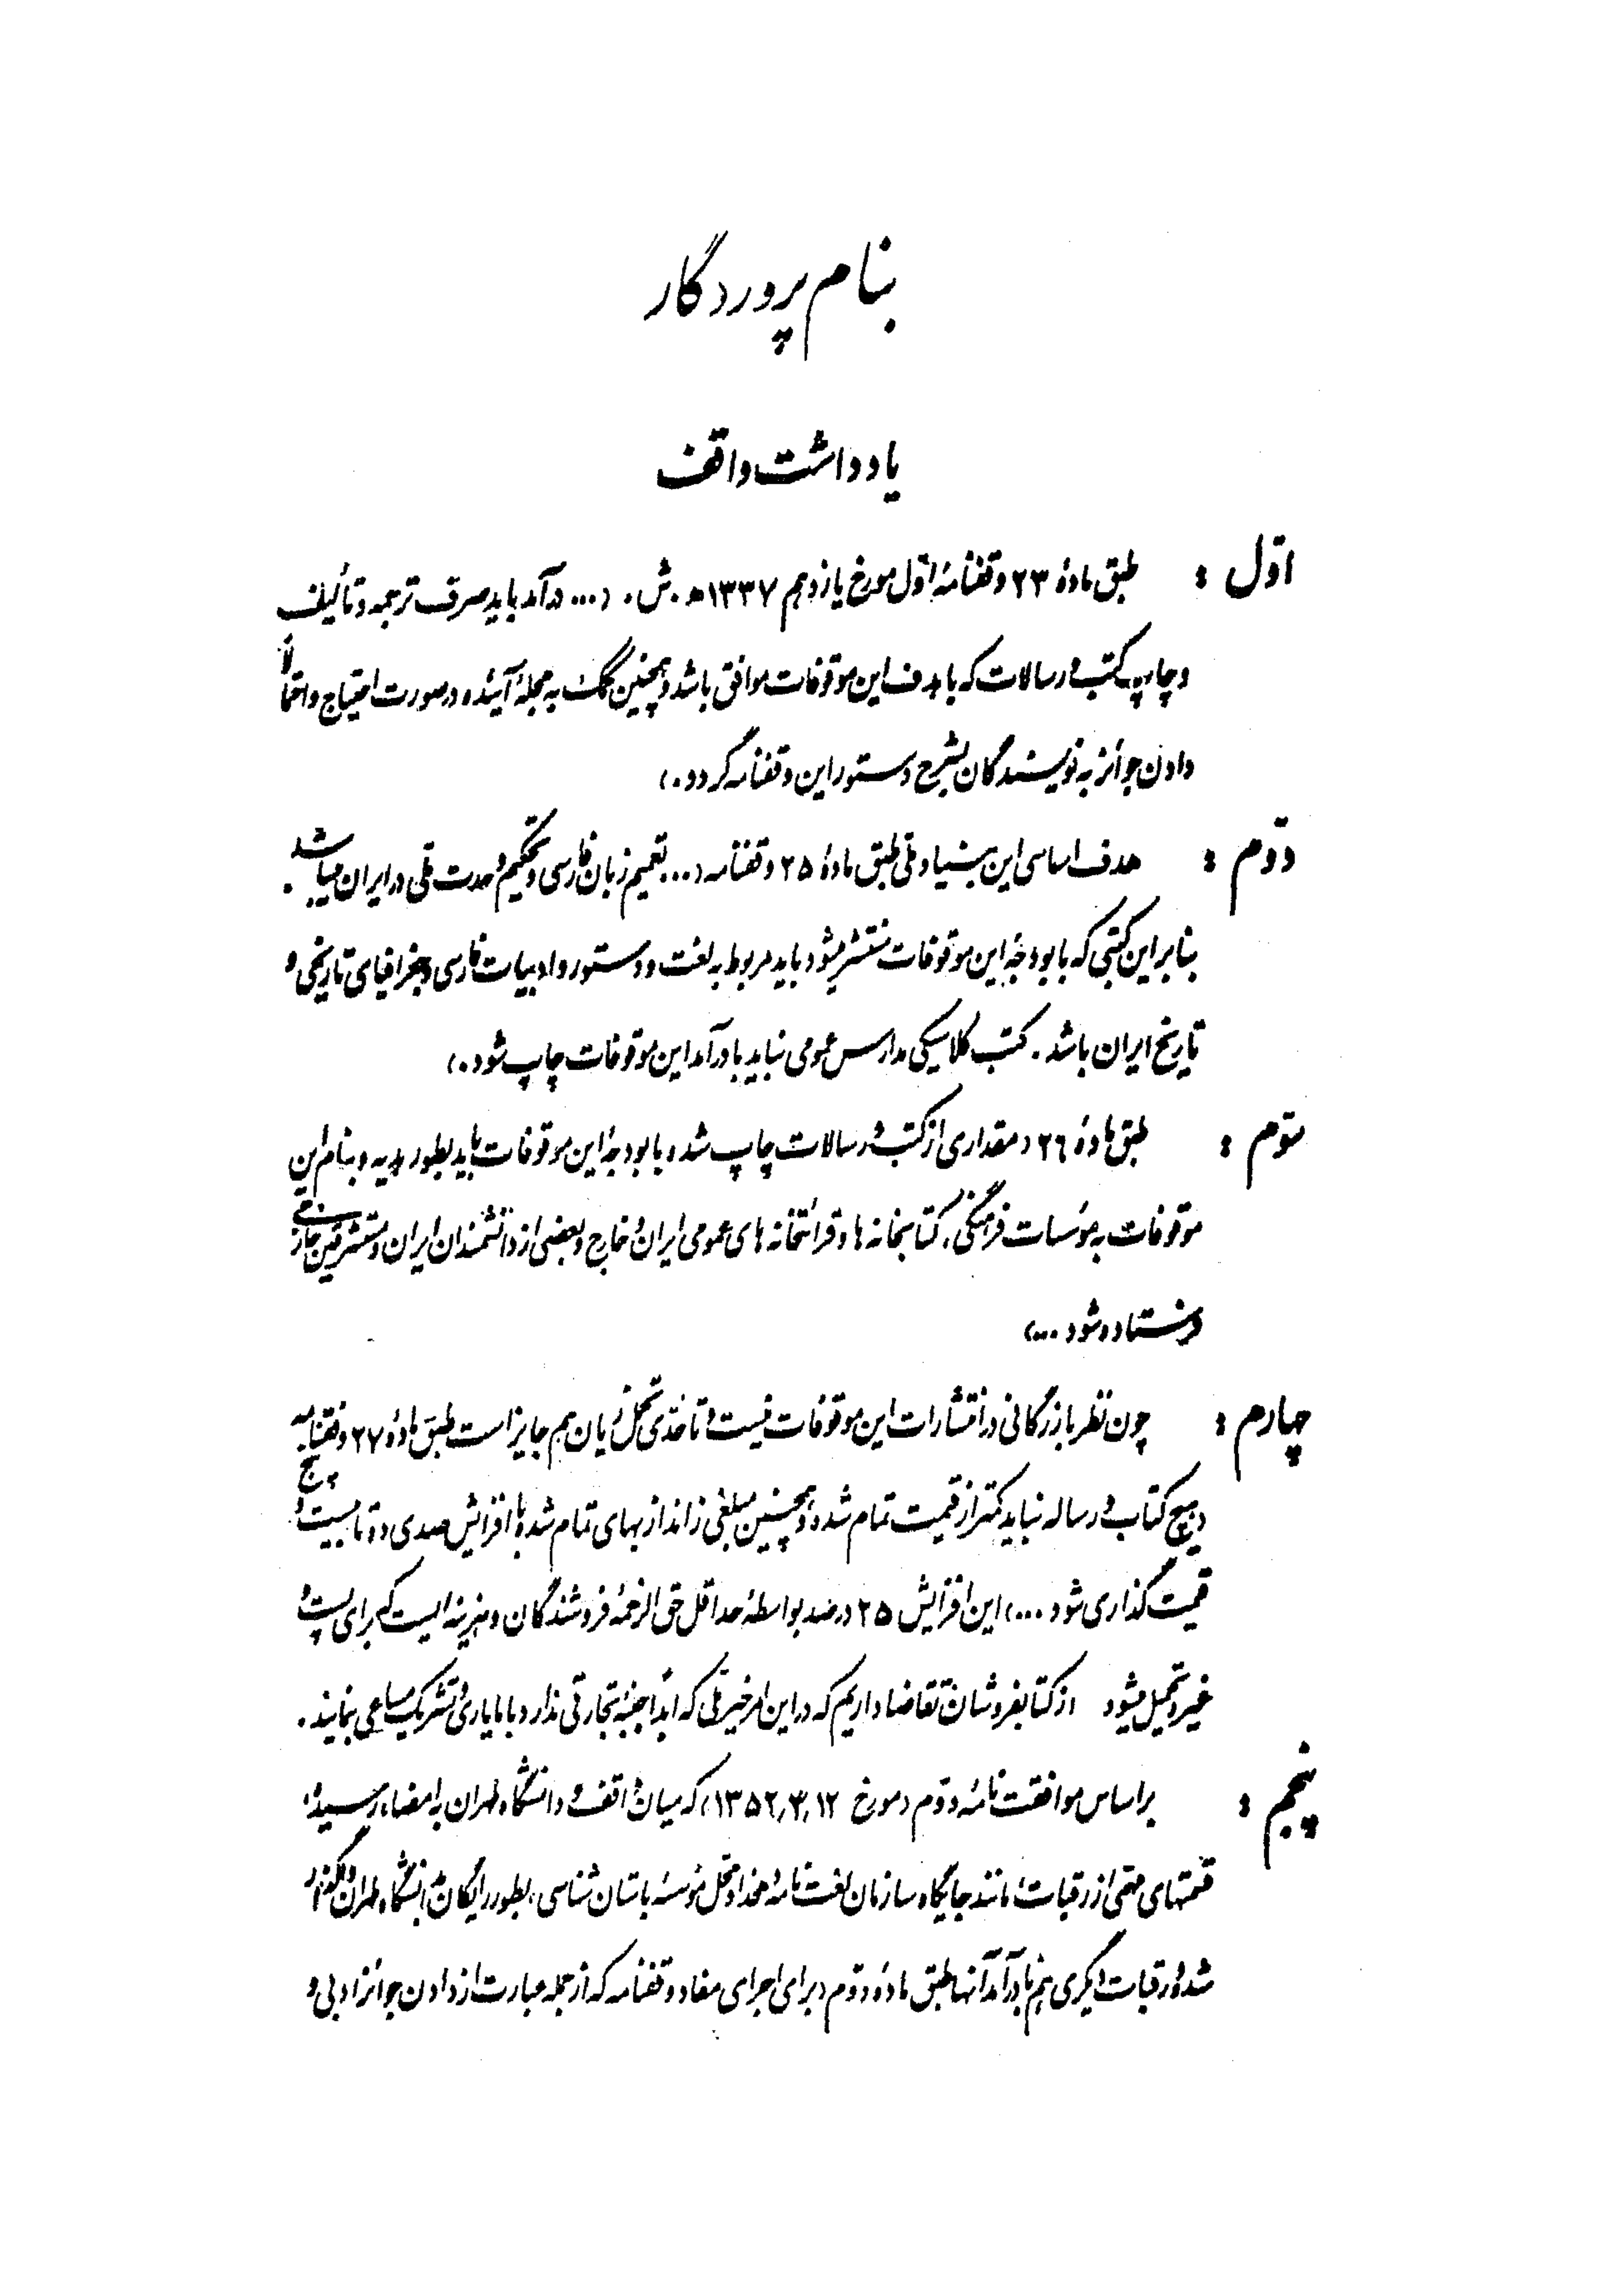 بنام پروردگار
یادداشت واقف
اوّل : طبق مادهٔ ۲۳ وقفنامهٔ اوّل مورخ یازدهم ۱۳۳۷ ه . ش . (... درآمد باید صرف ترجمه و تألیف
و چاپ کتب و رسالات که با هدف این موقوفات موافق باشد و همچنین کمک به مجلهٔ آینده در صورت احتیاج و احتمالاً
دادن جوائز به نویسندگان بشرح دستور این وقفنامه گردد .)
دوّم : هدف اساسی این بنیاد ملی طبق مادهٔ ۲۵ وقفنامه (... تعمیم زبان فارسی و تحکیم وحدت ملّی در ایران میباشد .
بنابراین کتبی که با بودجهٔ این موقوفات منتشر میشود باید مربوط به لغت و دستور و ادبیات فارسی و جغرافیای تاریخی و
تاریخ ایران باشد . کتب کلاسیکی مدارس عمومی نباید با درآمد این موقوفات چاپ شود .)
سوّم : طبق مادهٔ ۲۶ (مقداری از کتب و رسالات چاپ شده با بودجهٔ این موقوفات باید بطور هدیه و بنام این
موقوفات به مؤسسات فرهنگی، کتابخانه‌ها و قرائتخانه‌های عمومی ایران و خارج و بعضی از دانشمندان ایران و مستشرقین خارجی
فرستاده شود ...)
چهارم : چون نظر بازرگانی در انتشارات این موقوفات نیست و تا حدّی تحمّل زیان هم جایز است طبق مادهٔ ۲۷ وقفنامه
(هیچ کتاب و رساله نباید کمتر از قیمت تمام شده و همچنین مبلغی زائد از بهای تمام شده با افزایش صدی ده تا بیست و پنج
قیمت گذاری شود ...) این افزایش ۲۵ درصد بواسطهٔ حداقل حق الزحمهٔ فروشندگان و هزینه ایست که برای پست و
غیره تحمیل میشود از کتابفروشان تقاضا داریم که در این امر خیر ملّی که ابداً جنبهٔ تجارتی ندارد با ما یاری و تشریک مساعی بنمایند .
پنجم : براساس موافقت نامهٔ دوّم (مورخ ۱۲ ر ۳ ر ۱۳۵۲) که میان واقف و دانشگاه طهران به امضاء رسیده،
قسمتهای مهمّی از رقبات مانند جایگاه سازمان لغت نامهٔ دهخدا و محلّ مؤسسهٔ باستان شناسی، بطور رایگان به دانشگاه طهران واگذار
شد و رقبات دیگری هم با درآمد آنها طبق مادهٔ دوّم (برای اجرای مفاد وقفنامه که از جمله عبارت از دادن جوائز ادبی و